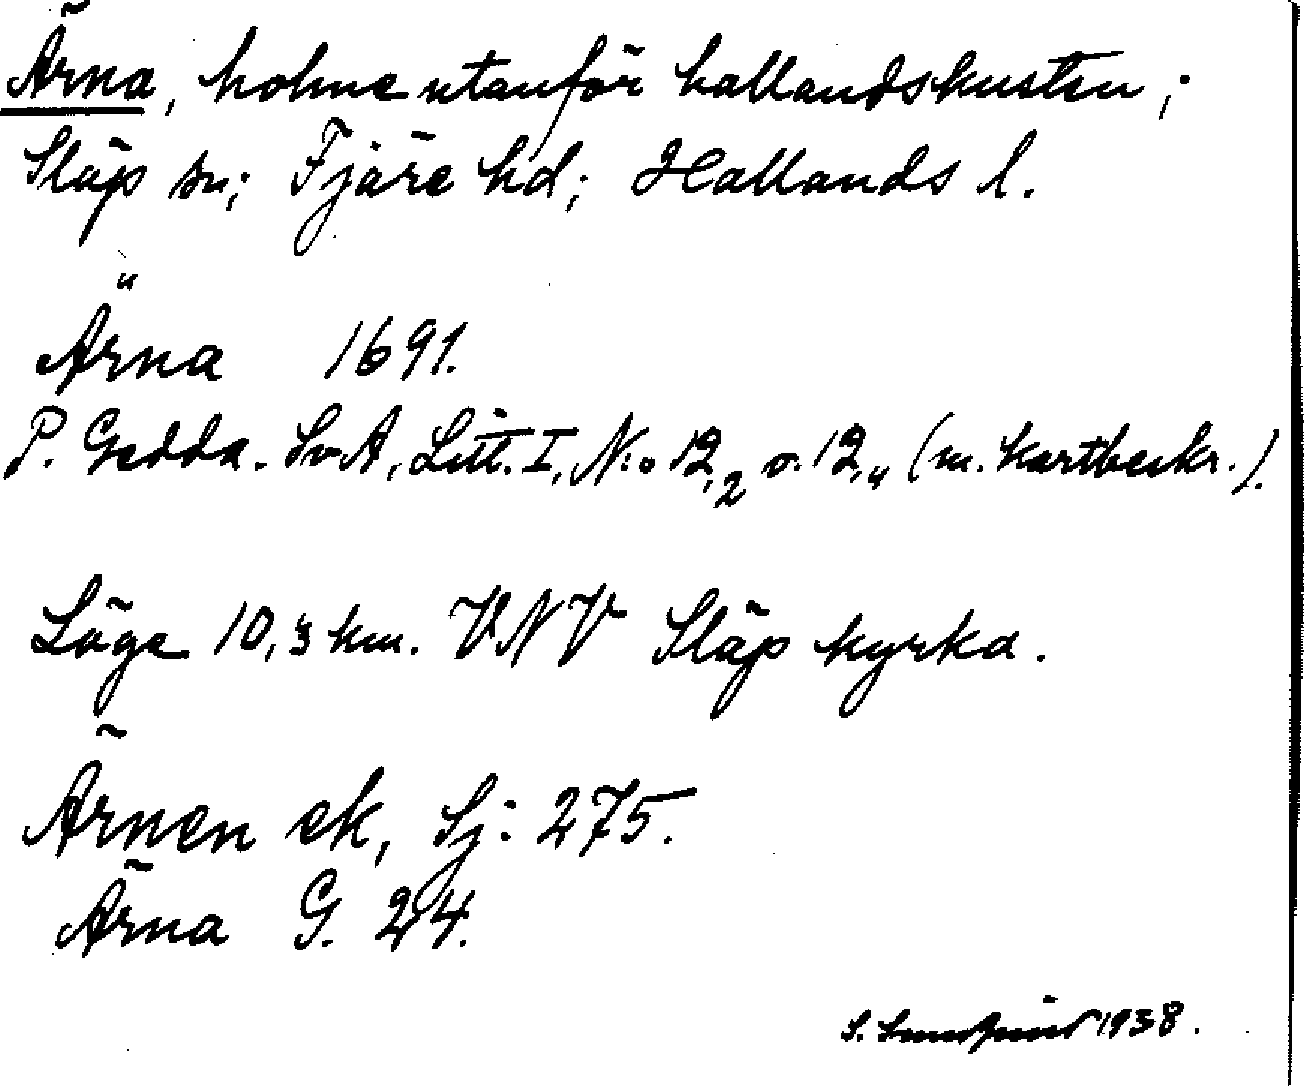 Ärna, holme utanför hallandskusten;
Släp sn; Fjäre hd; Hallands l.
Ärna 1691.
P. Gedda. SvA, Litt. I, N:o 12,2 o. 12,4 (m. kartbeskr.).
Läge 10,3 km. VNV Släp kyrka.
Ärnen ek, Sj: 275.
Ärna G. 24.
S. 1938.